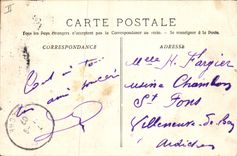 II
CARTE POSTALE
Tous les Pays Etrangers n'acceptent pas la Correspondance au recto. - Se renseigner à la Poste.
CORRESPONDANCE
ADRESSE
Melle H. Fargier
usine Chambon
St Fons
Villeneuve-de-Berg
Ardèche
ami sincère